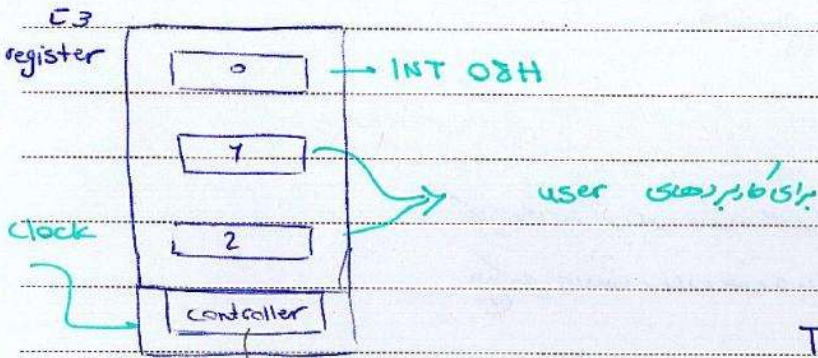 register
0 → INT 08H
1
برای کاربردهای user
2
clock
controller
T